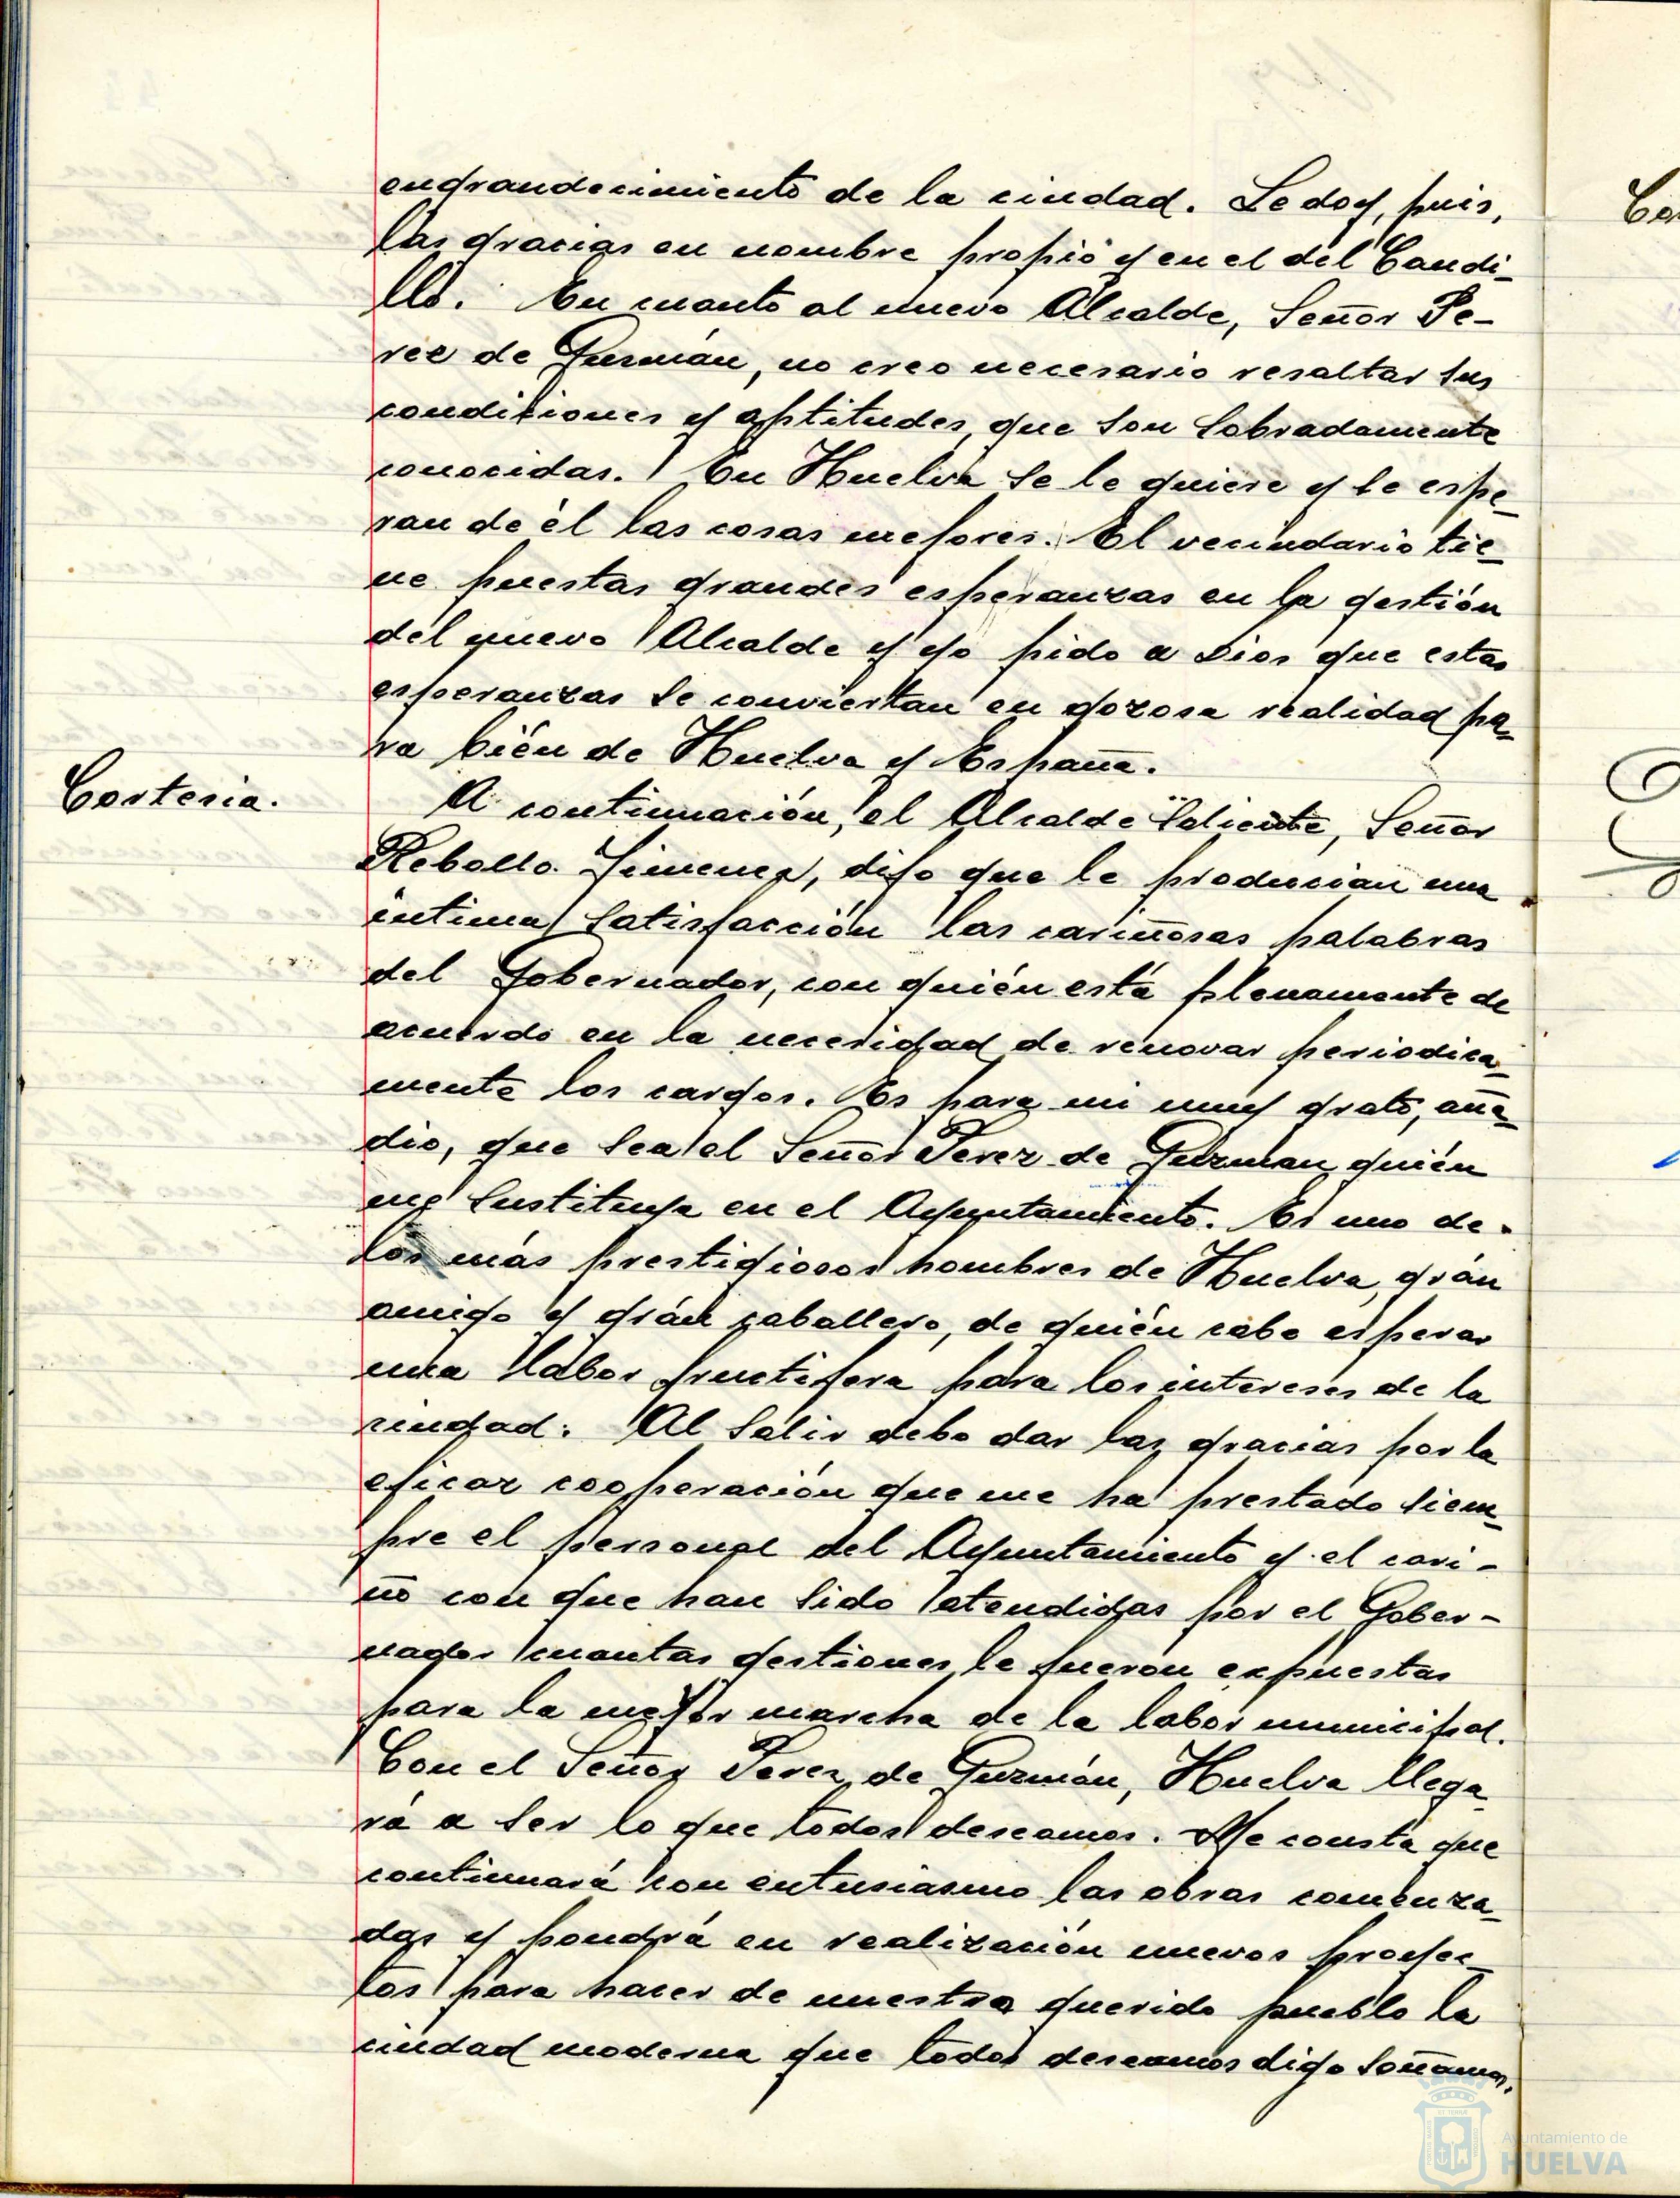 engrandecimiento de la ciudad. Le doy, pues,
las gracias en nombre propio y en el del Caudi-
llo. En cuanto al nuevo Alcalde, Señor Pe-
rez de Guzmán, no creo necesario resaltar sus
condiciones y aptitudes, que son sobradamente
conocidas. En Huelva se le quiere y se espe-
ran de él las cosas mejores. El vecindario tie-
ne puestas grandes esperanzas en la gestión
del nuevo Alcalde y yo pido a Dios que estas
esperanzas se conviertan en gozosa realidad pa-
ra bién de Huelva y España.
Cortesia.
A continuación, el Alcalde saliente, Señor
Rebollo Jimenez, dijo que le producian una
intima satisfacción las cariñosas palabras
del Gobernador, con quién está plenamente de
acuerdo en la necesidad de renovar periodica-
mente los cargos. Es para mi muy grato, aña-
dio, que sea el Señor Perez de Guzman quién
me sustituya en el Ayuntamiento. Es uno de
los más prestigiosos hombres de Huelva, grán
amigo y grán caballero, de quién cabe esperar
una labor fructifera para los intereses de la
ciudad. Al salir debo dar las gracias por la
eficaz cooperación que me ha prestado siem-
pre el personal del Ayuntamiento y el cari-
ño con que han sido atendidas por el Gober-
nador cuantas gestiones le fueron expuestas
para la mejor marcha de la labor municipal.
Con el Señor Perez de Guzmán, Huelva llega-
rá a ser lo que todos deseamos. Me consta que
continuará con entusiasmo las obras comenza-
das y pondrá en realización nuevos proyec-
tos para hacer de nuestro querido pueblo la
ciudad moderna que todos deseamos digo soñamos.
Ayuntamiento de
HUELVA